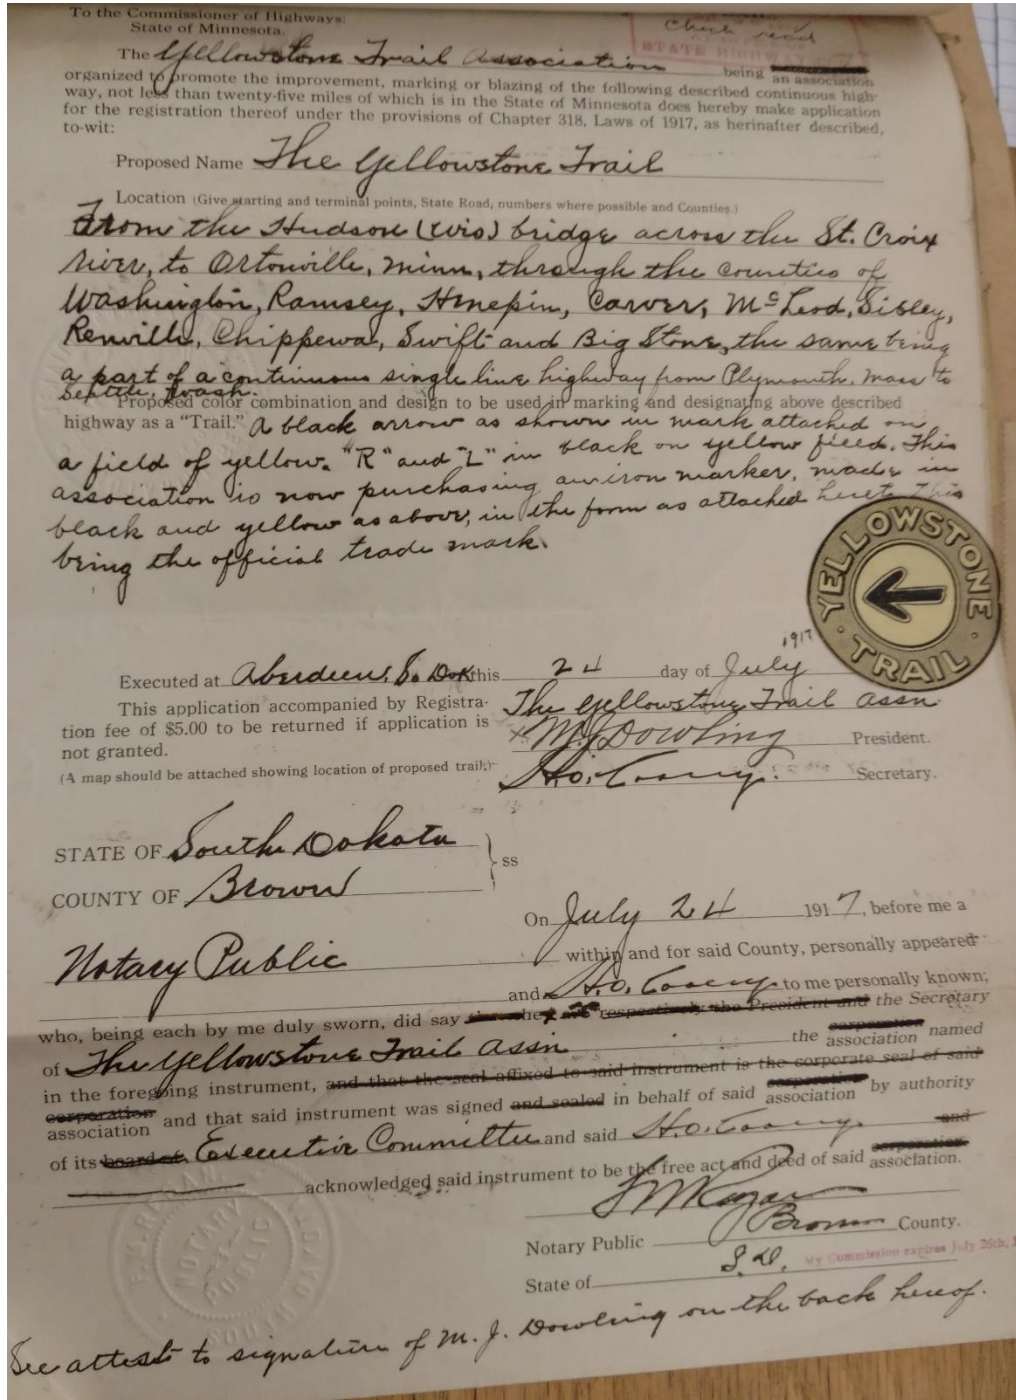 To the Commissioner of Highways:
State of Minnesota.
Check recd
STATE HIGHWAY
The Yellowstone Trail Association being an association
organized to promote the improvement, marking or blazing of the following described continuous high-
way, not less than twenty-five miles of which is in the State of Minnesota does hereby make application
for the registration thereof under the provisions of Chapter 318, Laws of 1917, as herinafter described,
to-wit:
Proposed Name The Yellowstone Trail
Location (Give starting and terminal points, State Road, numbers where possible and Counties.)
From the Hudson (Wis) bridge across the St. Croix
River, to Ortonville, Minn, through the counties of
Washington, Ramsey, Hnepin, Carver, McLeod, Sibley,
Renville, Chippewa, Swift and Big Stone, the same being
a part of a continuous single line highway from Plymouth, Mass to
Seattle, Wash.
Proposed color combination and design to be used in marking and designating above described
highway as a "Trail." A black arrow as shown in mark attached on
a field of yellow. "R" and "L" in black on yellow field. This
association is now purchasing an iron marker, made in
black and yellow as above, in the form as attached hereto This
being the official trade mark.
YELLOWSTONE
TRAIL
Executed at Aberdeen, S. Dak this 24 day of July 1917
This application accompanied by Registra-
tion fee of $5.00 to be returned if application is
not granted.
(A map should be attached showing location of proposed trail.)
The Yellowstone Trail Assn
x M J Dowling President.
H.O. Cooley. Secretary.
STATE OF South Dakota
COUNTY OF Brown
ss
On July 24 1917, before me a
Notary Public within and for said County, personally appeared
and H.O. Cooley to me personally known;
who, being each by me duly sworn, did say respectively the President and the Secretary
of The Yellowstone Trail Assn the corporation association named
in the foregoing instrument, and that the seal affixed to said instrument is the corporate seal of said
corporation association and that said instrument was signed and sealed in behalf of said corporation association by authority
of its board of Executive Committee and said H.O. Cooley and
acknowledged said instrument to be the free act and deed of said corporation association.
Notary Public Brown County.
State of S.D. My Commission expires July 26th,
NOTARY
PUBLIC
SOUTH
See attest to signature of M. J. Dowling on the back hereof.